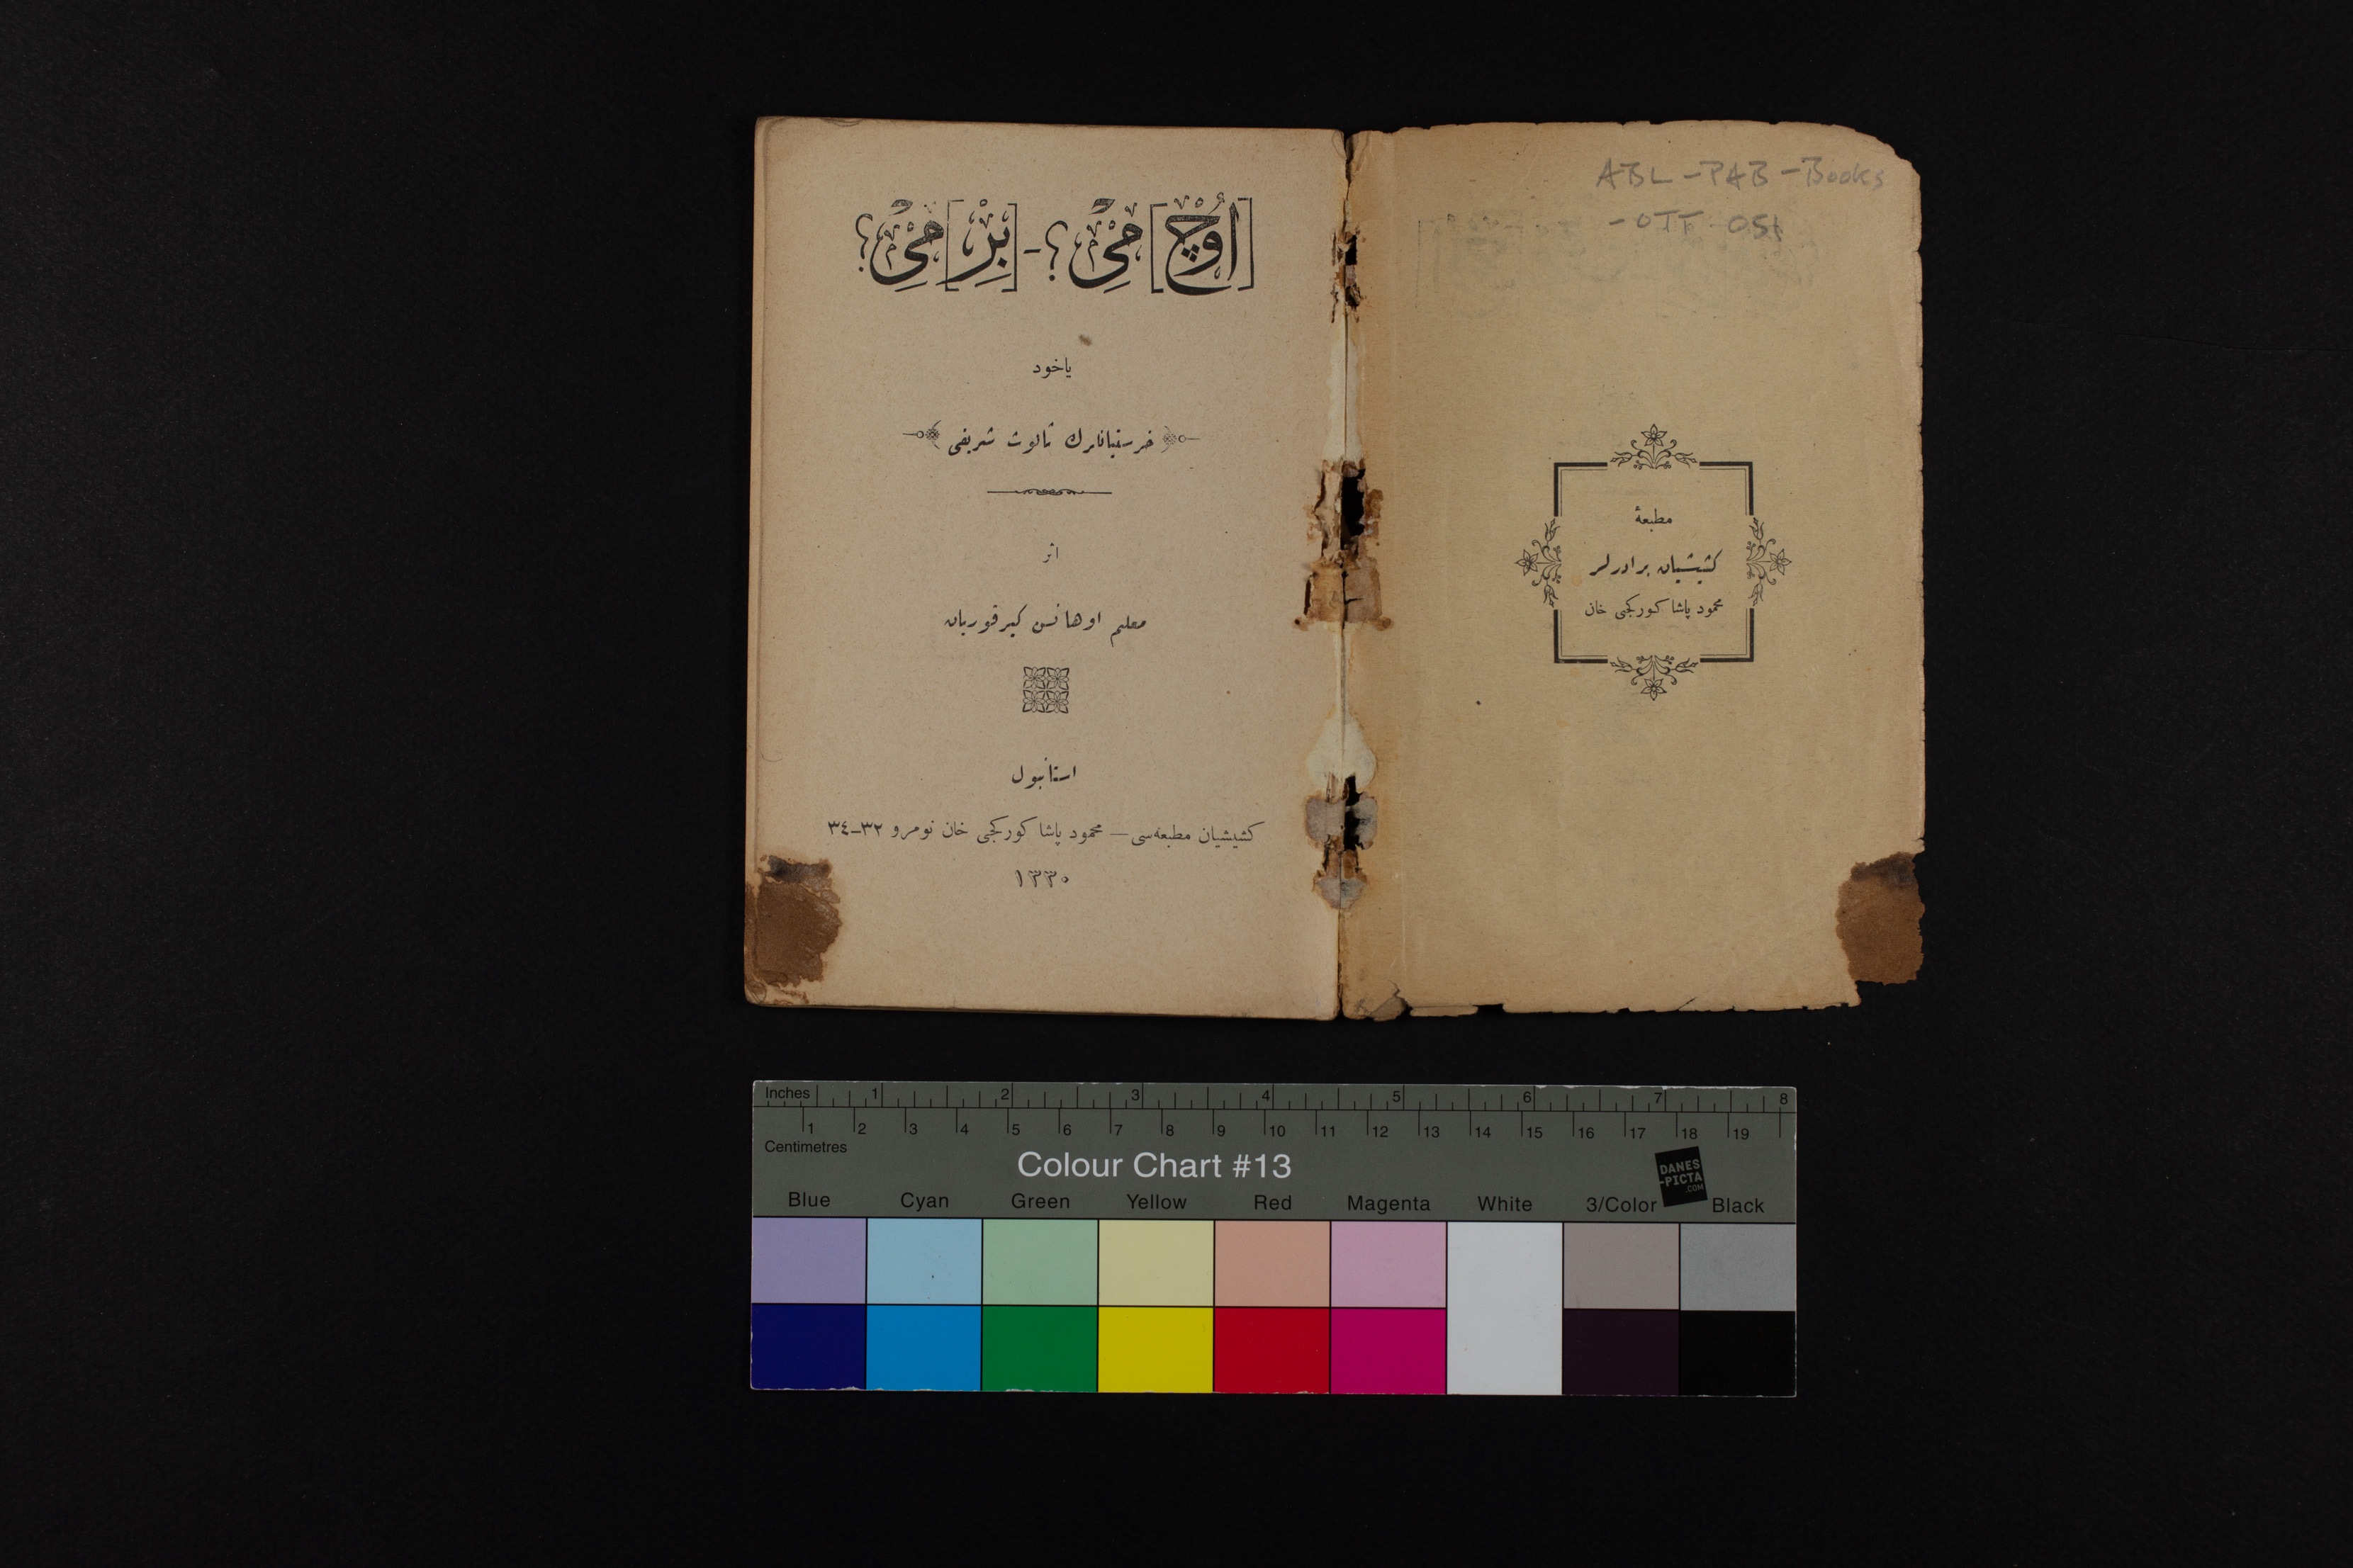 ABL-PAB-Books
-OTT-051
مطبعۀ
كشيشيان برادرلر
محمود پاشا كوركجى خان
[اُوچْ] مىْ؟ - [بِرْ] مىْ؟
ياخود
خرستيانلرك ثالوث شريفى
اثر
معلم اوهانس كيرقوريان
استانبول
كشيشيان مطبعه‌سى — محمود پاشا كوركجى خان نومرو ٣٢-٣٤
١٣٣٠
Inches 1 2 3 4 5 6 7 8
1 2 3 4 5 6 7 8 9 10 11 12 13 14 15 16 17 18 19
Centimetres
Colour Chart #13
DANES
-PICTA
.COM
Blue Cyan Green Yellow Red Magenta White 3/Color Black